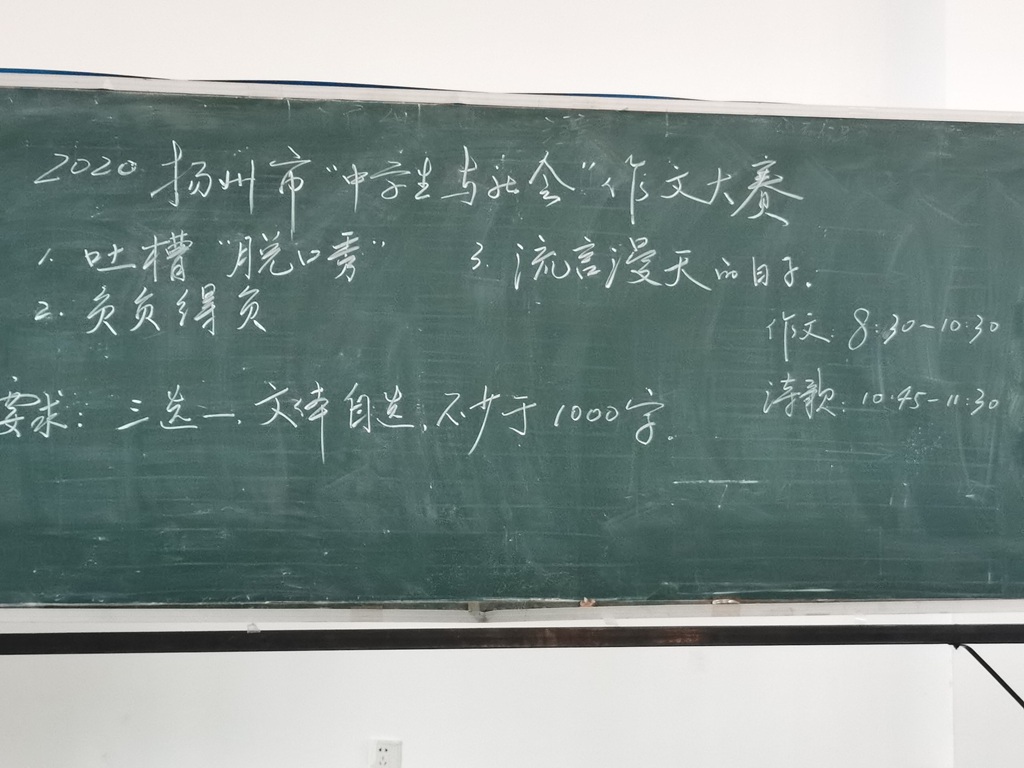 2020 扬州市“中学生与社会”作文大赛
1. 吐槽“脱口秀”
3. 流言漫天的日子.
2. 负负得负
作文: 8:30-10:30
诗歌: 10:45-11:30
要求: 三选一, 文体自选, 不少于1000字。